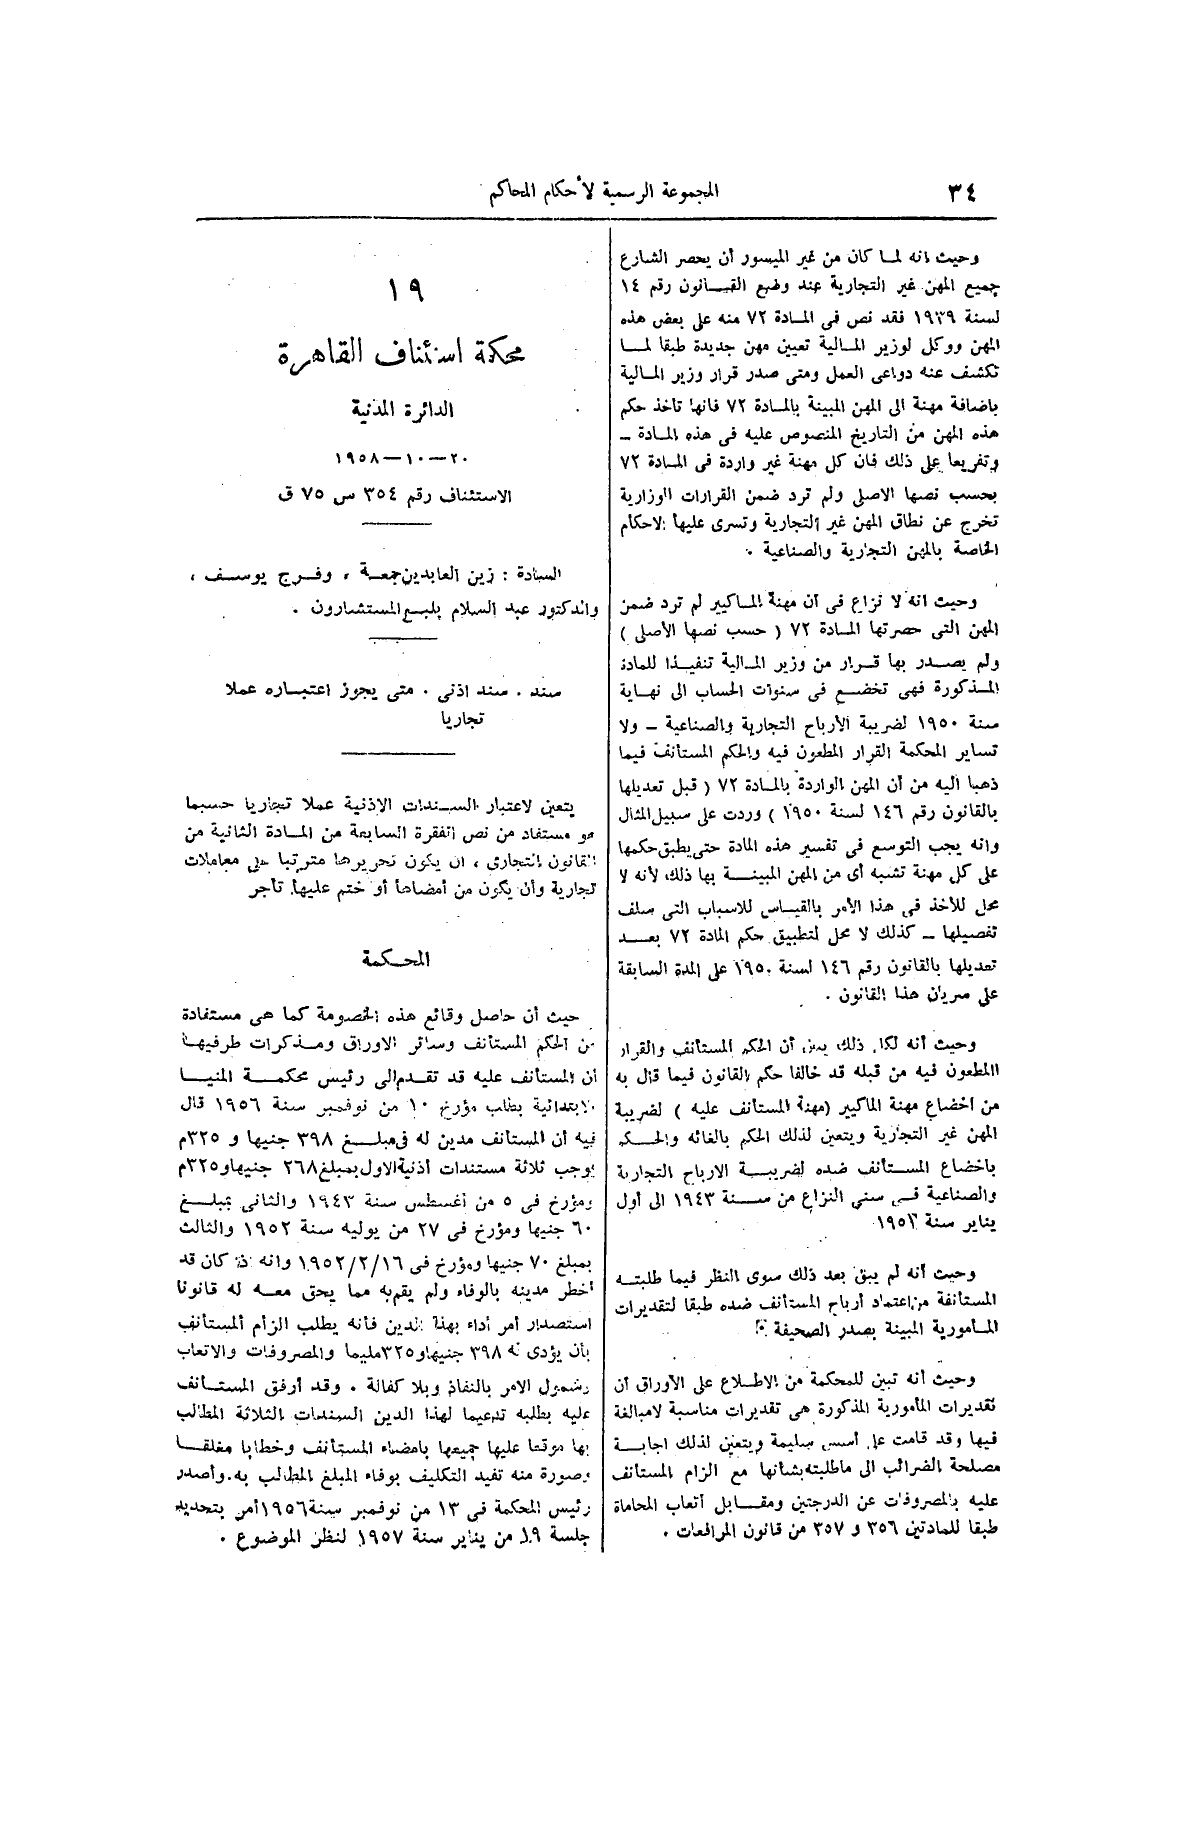 ٣٤
المجموعة الرسمية لأحكام المحاكم
وحيث انه لما كان من غير الميسور أن يحصر الشارع
جميع المهن غير التجارية عند وضع القانون رقم ١٤
لسنة ١٩٣٩ فقد نص فى المادة ٧٢ منه على بعض هذه
المهن ووكل لوزير المالية تعيين مهن جديدة طبقا لما
تكشف عنه دواعى العمل ومتى صدر قرار وزير المالية
باضافة مهنة الى المهن المبينة بالمادة ٧٢ فانها تأخذ حكم
هذه المهن من التاريخ المنصوص عليه فى هذه المادة ــ
وتفريعا على ذلك فان كل مهنة غير واردة فى المادة ٧٢
بحسب نصها الاصلى ولم ترد ضمن القرارات الوزارية
تخرج عن نطاق المهن غير التجارية وتسرى عليها الاحكام
الخاصة بالمهن التجارية والصناعية .
وحيث انه لا نزاع فى أن مهنة الماكيير لم ترد ضمن
المهن التى حصرتها المادة ٧٢ ( حسب نصها الأصلى )
ولم يصدر بها قرار من وزير المالية تنفيذا للمادة
المذكورة فهى تخضع فى سنوات الحساب الى نهاية
سنة ١٩٥٠ لضريبة الأرباح التجارية والصناعية ــ ولا
تساير المحكمة القرار المطعون فيه والحكم المستأنف فيما
ذهبا اليه من أن المهن الواردة بالمادة ٧٢ ( قبل تعديلها
بالقانون رقم ١٤٦ لسنة ١٩٥٠ ) وردت على سبيل المثال
وانه يجب التوسع فى تفسير هذه المادة حتى يطبق حكمها
على كل مهنة تشبه أى من المهن المبينة بها ذلك لأنه لا
محل للأخذ فى هذا الأمر بالقياس للاسباب التى سلف
تفصيلها ــ كذلك لا محل لتطبيق حكم المادة ٧٢ بعد
تعديلها بالقانون رقم ١٤٦ لسنة ١٩٥٠ على المدة السابقة
على سريان هذا القانون .
وحيث أنه لكل ذلك يبين أن الحكم المستأنف والقرار
المطعون فيه من قبله قد خالفا حكم القانون فيما قال به
من اخضاع مهنة الماكيير (مهنة المستأنف عليه ) لضريبة
المهن غير التجارية ويتعين لذلك الحكم بالغائه والحكم
باخضاع المستأنف ضده لضريبة الارباح التجارية
والصناعية فى سنى النزاع من سنة ١٩٤٣ الى أول
يناير سنة
وحيث أنه لم يبق بعد ذلك سوى النظر فيما طلبته
المستأنفة من اعتماد أرباح المستأنف ضده طبقا لتقديرات
المأمورية المبينة بصدر الصحيفة .
وحيث أنه تبين للمحكمة من الاطلاع على الأوراق أن
تقديرات المأمورية المذكورة هى تقديرات مناسبة لامبالغة
فيها وقد قامت على أسس سليمة ويتعين لذلك اجابة
مصلحة الضرائب الى ماطلبته بشأنها مع الزام المستأنف
عليه بالمصروفات عن الدرجتين ومقابل أتعاب المحاماة
طبقا للمادتين ٣٥٦ و ٣٥٧ من قانون المرافعات .
١٩
محكمة استئناف القاهرة
الدائرة المدنية
٢٠—١٠—١٩٥٨
الاستئناف رقم ٣٥٤ س ٧٥ ق
السادة : زين العابدين جمعة ، وفرج يوسف ،
والدكتور عبد السلام بلبع المستشارون .
سند . سند اذنى . متى يجوز اعتباره عملا
تجاريا
يتعين لاعتبار السندات الاذنية عملا تجاريا حسبما
هو مستفاد من نص الفقرة السابعة من المادة الثانية من
القانون التجارى ، ان يكون تحريرها مترتبا على معاملات
تجارية وأن يكون من أمضاها أو ختم عليها تاجر
المحكمة
حيث أن حاصل وقائع هذه الخصومة كما هى مستفادة
من الحكم المستأنف وسائر الاوراق ومذكرات طرفيها
أن المستأنف عليه قد تقدم الى رئيس محكمة المنيا
الابتدائية بطلب مؤرخ ١٠ من نوفمبر سنة ١٩٥٦ قال
فيه أن المستأنف مدين له فى مبلغ ٣٩٨ جنيها و ٣٢٥م
بموجب ثلاثة مستندات أذنية الاول بمبلغ ٢٦٨ جنيها و٣٢٥م
ومؤرخ فى ٥ من أغسطس سنة ١٩٤٣ والثانى بمبلغ
٦٠ جنيها ومؤرخ فى ٢٧ من يوليه سنة ١٩٥٢ والثالث
بمبلغ ٧٠ جنيها ومؤرخ فى ١٩٥٢/٢/١٦ وانه اذ كان قد
أخطر مدينه بالوفاء ولم يقم به مما يحق معه له قانونا
استصدار أمر أداء بهذا الدين فأنه يطلب الزام المستأنف
بأن يؤدى له ٣٩٨ جنيها و٣٢٥مليما والمصروفات والاتعاب
وشمول الامر بالنفاذ وبلا كفالة . وقد أرفق المستأنف
عليه بطلبه تدعيما لهذا الدين السندات الثلاثة المطالب
بها موقعا عليها جميعها بامضاء المستأنف وخطابا مغلقا
وصورة منه تفيد التكليف بوفاء المبلغ المطالب به.وأصدر
رئيس المحكمة فى ١٣ من نوفمبر سنة ١٩٥٦ أمر بتحديد
جلسة ١٩ من يناير سنة ١٩٥٧ لنظر الموضوع .